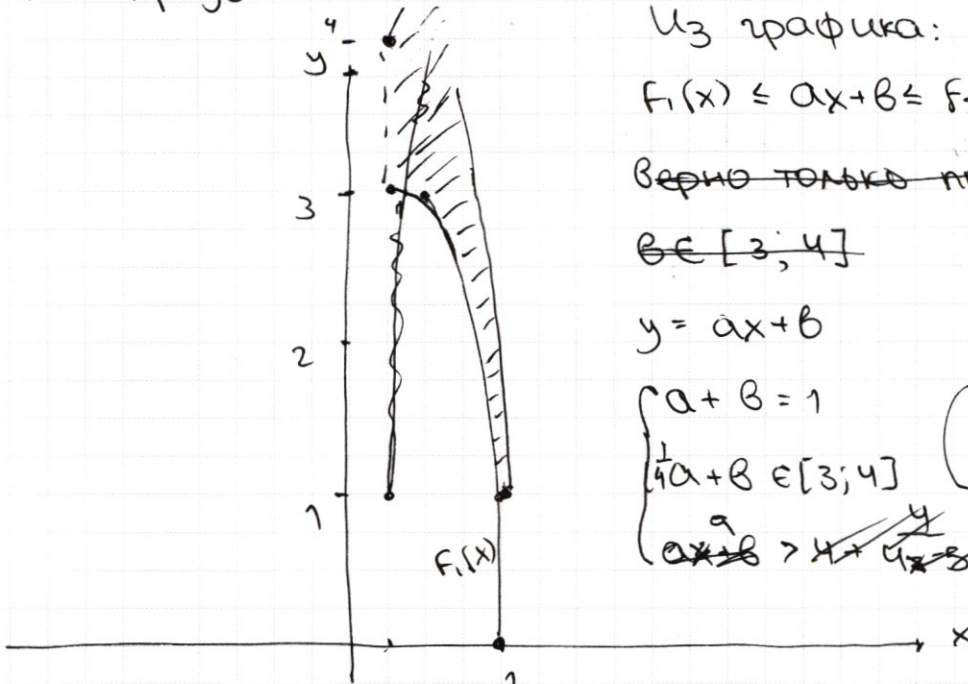 4
y
3
2
1
F₁(x)
x
1
Из графика:
F₁(x) ≤ ax+b ≤ F
верно только
b ∈ [3; 4]
y = ax+b
a + b = 1
1/4 a + b ∈ [3; 4]
ax+b > 4+